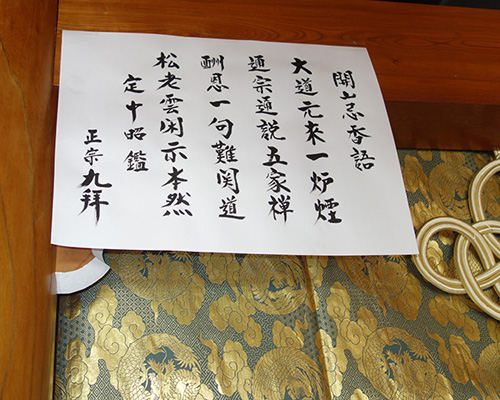 開山忌香語
大道元来一炉煙
通宗通説五家禅
酬恩一句難関道
松老雲闲示本然
定中昭鑑
正宗九拜